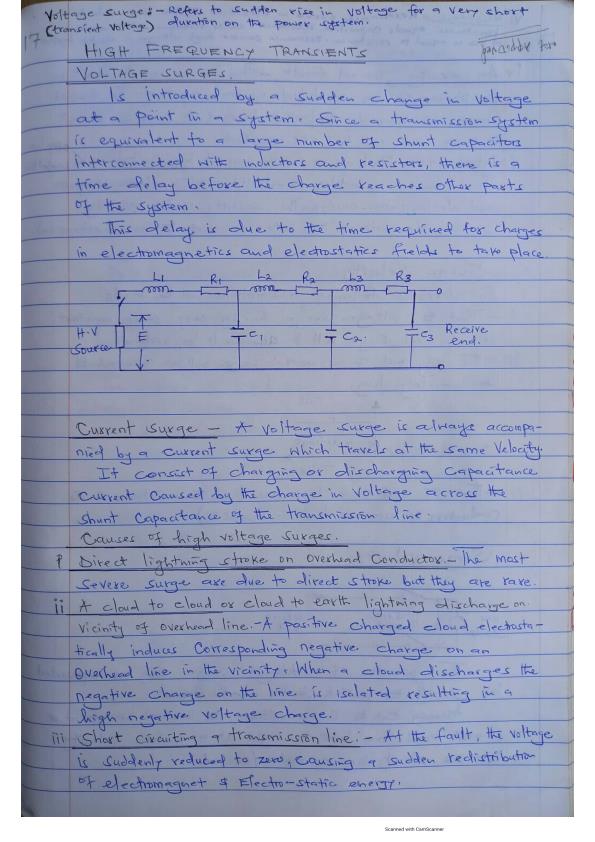 Voltage surge:- Refers to sudden rise in voltage for a very short
(transient Voltage) duration on the power system.
17
HIGH FREQUENCY TRANSIENTS
VOLTAGE SURGES.
Is introduced by a sudden change in voltage
at a point in a system. Since a transmission system
is equivalent to a large number of shunt capacitors
interconnected with inductors and resistors, there is a
time delay before the charge reaches other parts
of the system.
This delay is due to the time required for charges
in electromagnetics and electrostatics fields to take place.
L1 R1 L2 R2 L3 R3
H.V Source E C1 C2. C3 Receive end.
Current surge - A voltage surge is always accompa-
nied by a current surge which travels at the same velocity.
It consist of charging or discharging capacitance
current caused by the change in voltage across the
shunt capacitance of the transmission line.
Causes of high voltage surges.
i Direct lightning stroke on overhead conductor.- The most
severe surge are due to direct stroke but they are rare.
ii A cloud to cloud or cloud to earth lightning discharge on
vicinity of overhead line.-A positive charged cloud electrosta-
tically induces corresponding negative charge on an
overhead line in the vicinity. When a cloud discharges the
negative charge on the line is isolated resulting in a
high negative voltage charge.
iii Short circuiting a transmission line:- At the fault, the voltage
is suddenly reduced to zero, causing a sudden redistribution
of electromagnet & Electro-static energy.
Scanned with CamScanner